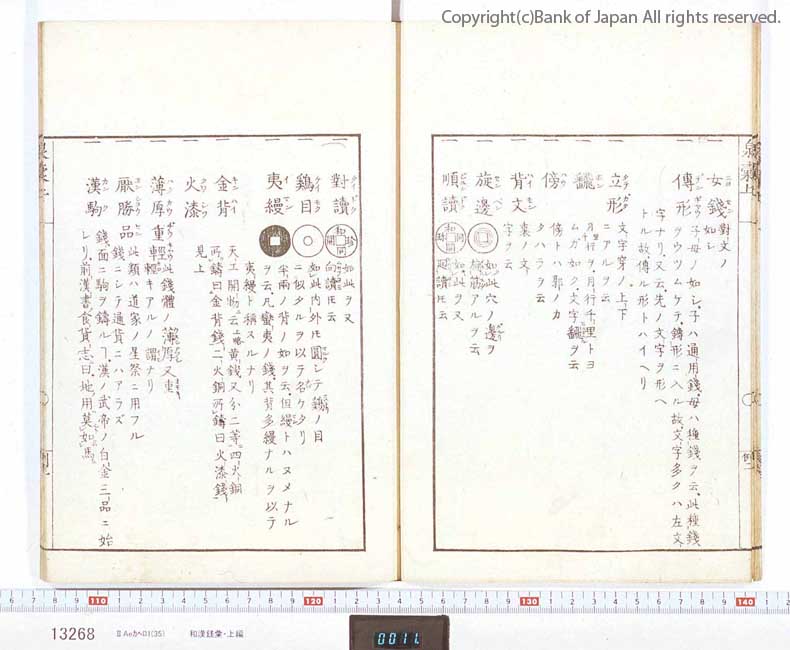 Copyright(c)Bank of Japan All rights reserved.
一 女錢 對文ノ如シ
一 傳形 子母ノ如シ子ハ通用錢母ハ種錢ヲ云此種錢
ヲウツムケテ鑄形ニ入ル故文字多クハ左文
字ナリ又云先ノ文字ヲ形ヘ
トル故傳ル形トハイヘリ
一 立形 文字穿ノ上下
ニアルヲ云
一 月行ヲ月行千里トヨ
ムガ如ク文字飜ヲ云
一 傍 傍ト ハ郭ノカ
タハラヲ云
一 背文 裏ノ文
字ヲ云
一 旋邊 如此穴ノ邊ヲ
筋アルヲ云
一 順讀 和同開珍 如此ヲ又
廻讀トモ云
一 對讀 和同開珍 如此ヲ又
向讀トモ云
一 鷄目 如此内外トモ圓シテ鷄ノ目
ニ似タルヲ以テ名ケタリ
一 夷縵 半兩ノ背ノ如ヲ云但縵トハヌメナル
ヲ云凡蠻夷ノ錢其背多縵ナルヲ以テ
夷縵ト稱スルナリ
一 金背 天工開物云上略黄錢又分二等四火銅
所鑄曰金背錢二火銅所鑄曰火漆錢
一 火漆 見上
一 薄厚重輕 此錢體ノ薄厚又重
輕キアルノ謂ナリ
一 厭勝品 此類ハ道家ノ星祭ニ用フル
錢ニシテ通貨ニハアラズ
一 漢駒 錢面ニ駒ヲ鑄ルヿ漢ノ武帝ノ白金三品ニ始
レリ前漢書食貨志曰地用莫如馬
110 120 130 140
13268
ⅡAeカヘ01(35)
和漢銭彙・上編
0011